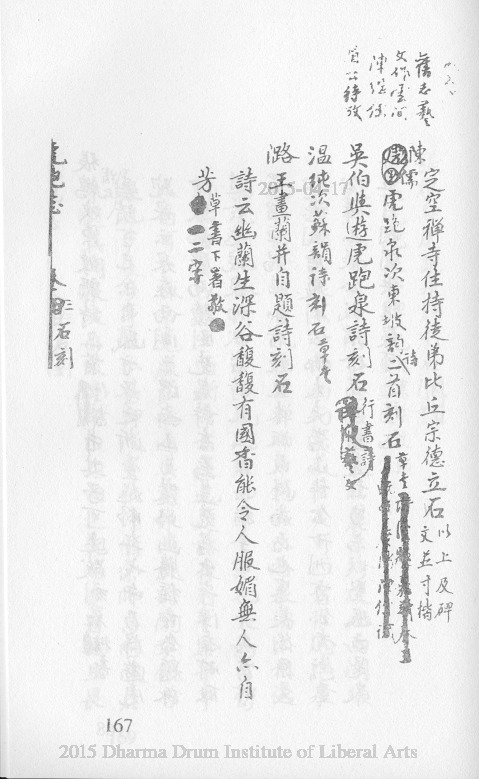 舊志藝
文作雲間
陳儒
定空禪寺住持徒弟比丘宗德立石 以上及碑文並寸楷
虎跑泉次東坡韵詩二首刻石
吳伯與遊虎跑泉詩刻石 行書詩
溫純次蘇韻詩刻石 草書
潞王畫蘭并自題詩刻石
詩云幽蘭生深谷馥馥有國香能令人服媚無人亦自
芳 草書下署敬一二字
虎跑志
石刻
2015-04-17
167
2015 Dharma Drum Institute of Liberal Arts